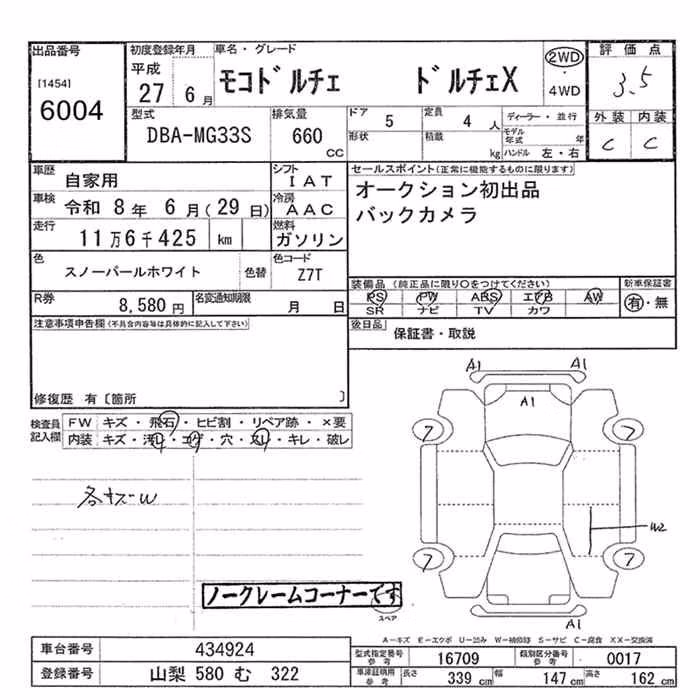 出品番号
[1454]
6004
初度登録年月
平成
27 6月
車名・グレード
モコドルチェ ドルチェX
2WD
・
4WD
評価点
3.5
外装 内装
C C
型式
DBA-MG33S
排気量
660
CC
ドア
5
定員
4 人
ディーラー・並行
形状
積載
kg
モデル年式 年
ハンドル 左・右
車歴
自家用
シフト
IAT
車検
令和 8年 6月(29日)
冷房
AAC
走行
11万6千425 km
燃料
ガソリン
色
スノーパールホワイト
色替
色コード
Z7T
セールスポイント(正常に機能するものに限ります)
オークション初出品
バックカメラ
装備品 (純正品に限り○をつけてください)
新車保証書
PS PW ABS エアB AW
SR ナビ TV カワ
有・無
R券
8,580 円
名変通知期限
月 日
後日品
保証書・取説
注意事項申告欄(不具合内容等は具体的に記入して下さい)
修復歴 有〔箇所 〕
検査員記入欄
FW キズ・飛石・ヒビ割・リペア跡・×要
内装 キズ・汚レ・コゲ・穴・スレ・キレ・破レ
各キズW
A1 A1
A1
7 7
W2
7 7
A1
ノークレームコーナーです
スペア
A－キズ E－エクボ U－凹み W－補修跡 S－サビ C－腐食 XX－交換済
車台番号
434924
登録番号
山梨 580 む 322
型式指定番号
参考
16709
類別区分番号
参考
0017
車庫証明用
参考
長さ 339 cm
幅 147 cm
高さ 162 cm